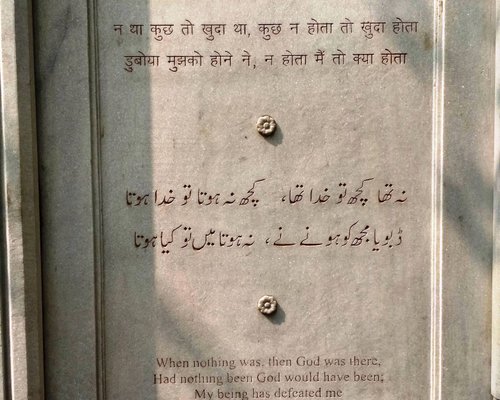 न था कुछ तो खुदा था, कुछ न होता तो खुदा होता
डुबोया मुझको होने ने, न होता मैं तो क्या होता
نہ تھا کچھ تو خدا تھا، کچھ نہ ہوتا تو خدا ہوتا
ڈبویا مجھ کو ہونے نے، نہ ہوتا میں تو کیا ہوتا
When nothing was, then God was there,
Had nothing been God would have been;
My being has defeated me